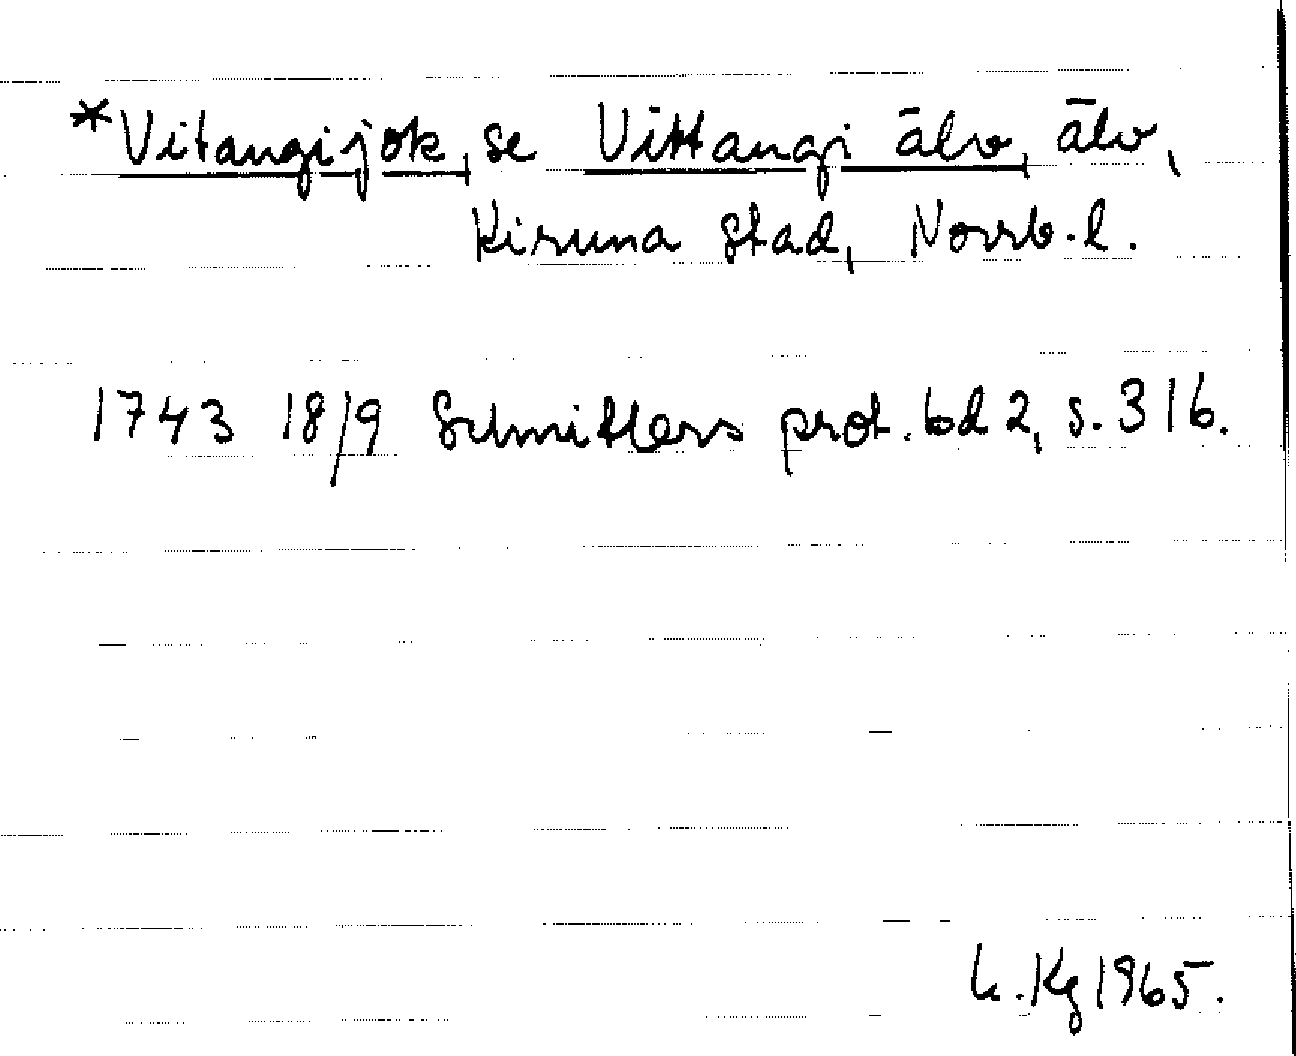 *Vitangijok, se Vittangi älv, älv,
Kiruna stad, Norrb. l.
1743 18/9 Schnitlers prot. bd 2, s. 316.
Kg 1965.